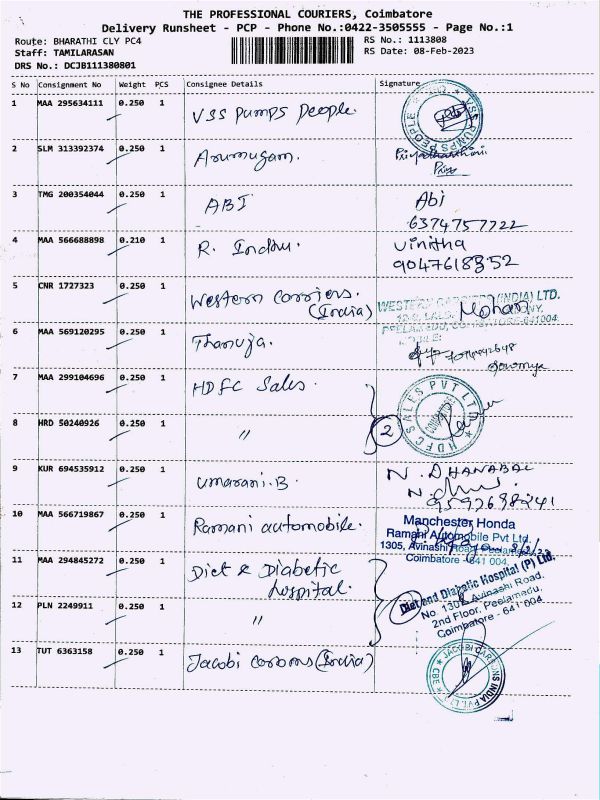 THE PROFESSIONAL COURIERS, Coimbatore
Delivery Runsheet - PCP - Phone No.:0422-3505555 - Page No.:1
Route: BHARATHI CLY PC4
RS No.: 1113808
Staff: TAMILARASAN
RS Date: 08-Feb-2023
DRS No.: DCJB111380801
S No Consignment No Weight PCS Consignee Details Signature
1 MAA 295634111 0.250 1 VSS Pumps People.
VSS PUMPS PEOPLE
2 SLM 313392374 0.250 1 Arumugam.
Priya
3 TMG 200354044 0.250 1 ABI Abi
6374757722
4 MAA 566688898 0.210 1 R. Indhu. Vinitha
9047618352
5 CNR 1727323 0.250 1 Western Carriers. (India)
WESTERN CARRIERS (INDIA) LTD.
Mohan
PEELAMEDU, COIMBATORE-641004.
MOBILE:
6 MAA 569120295 0.250 1 Thanuja.
Sowmya
7 MAA 299104696 0.250 1 HDFC Sales.
HDFC SALES PVT LTD
COIMBATORE
8 HRD 50240926 0.250 1 〃 2
9 KUR 694535912 0.250 1 Umarani.B. N. DHANABAL
9597698241
10 MAA 566719867 0.250 1 Ramani automobile.
Manchester Honda
Ramani Automobile Pvt Ltd.
1305, Avinashi Road Peelamedu,
Coimbatore - 641 004.
11 MAA 294845272 0.250 1 Diet & Diabetic
hospital.
Diet and Diabatic Hospital (P) Ltd.
No. 130, Avinashi Road,
2nd Floor, Peelamadu,
Coimbatore - 641 004
12 PLN 2249911 0.250 1 〃
13 TUT 6363158 0.250 1 Jacobi Carbons (India)
JACOBI CARBONS INDIA PVT. LTD
CBE